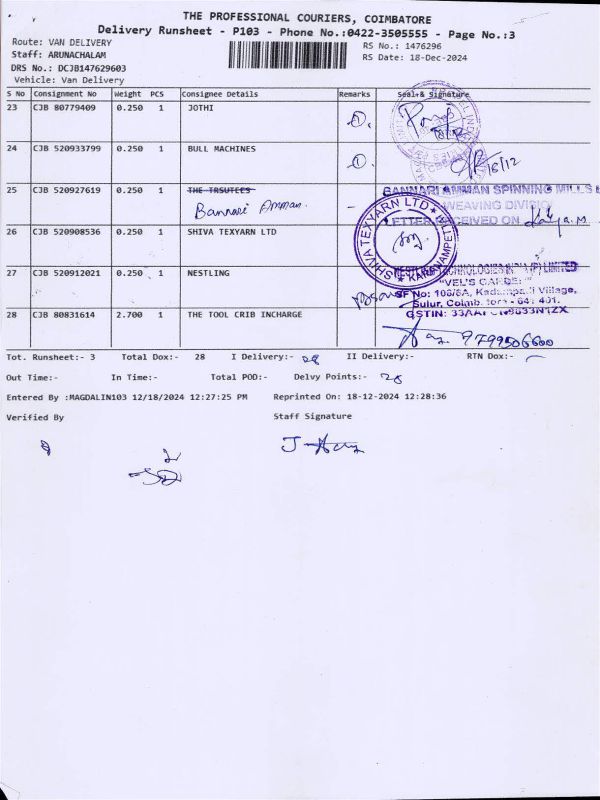 THE PROFESSIONAL COURIERS, COIMBATORE
Delivery Runsheet - P103 - Phone No.:0422-3505555 - Page No.:3
Route: VAN DELIVERY
RS No.: 1476296
Staff: ARUNACHALAM
RS Date: 18-Dec-2024
DRS No.: DCJB147629603
Vehicle: Van Delivery
S No Consignment No Weight PCS Consignee Details Remarks Seal & Signature
23 CJB 80779409 0.250 1 JOTHI
24 CJB 520933799 0.250 1 BULL MACHINES
18/12
25 CJB 520927619 0.250 1 THE TRSUTEES
Bannari Amman.
BANNARI AMMAN SPINNING MILLS L
WEAVING DIVISIO
LETTER RECEIVED ON
26 CJB 520908536 0.250 1 SHIVA TEXYARN LTD
SHIVA TEXYARN LTD
27 CJB 520912021 0.250 1 NESTLING
"VEL'S GARDEN"
SF No: 106/6A, Kadampadi Village,
Sulur, Coimbatore - 641 401.
28 CJB 80831614 2.700 1 THE TOOL CRIB INCHARGE
9799506600
Tot. Runsheet:- 3 Total Dox:- 28 I Delivery:- 28 II Delivery:- RTN Dox:-
Out Time:- In Time:- Total POD:- Delvy Points:- 28
Entered By :MAGDALIN103 12/18/2024 12:27:25 PM Reprinted On: 18-12-2024 12:28:36
Verified By Staff Signature